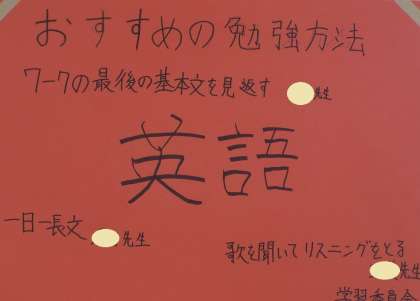 おすすめの勉強方法
ワークの最後の基本文を見返す 先生
英語
一日一長文 先生
歌を聞いてリスニングをとる
先生
学習委員会